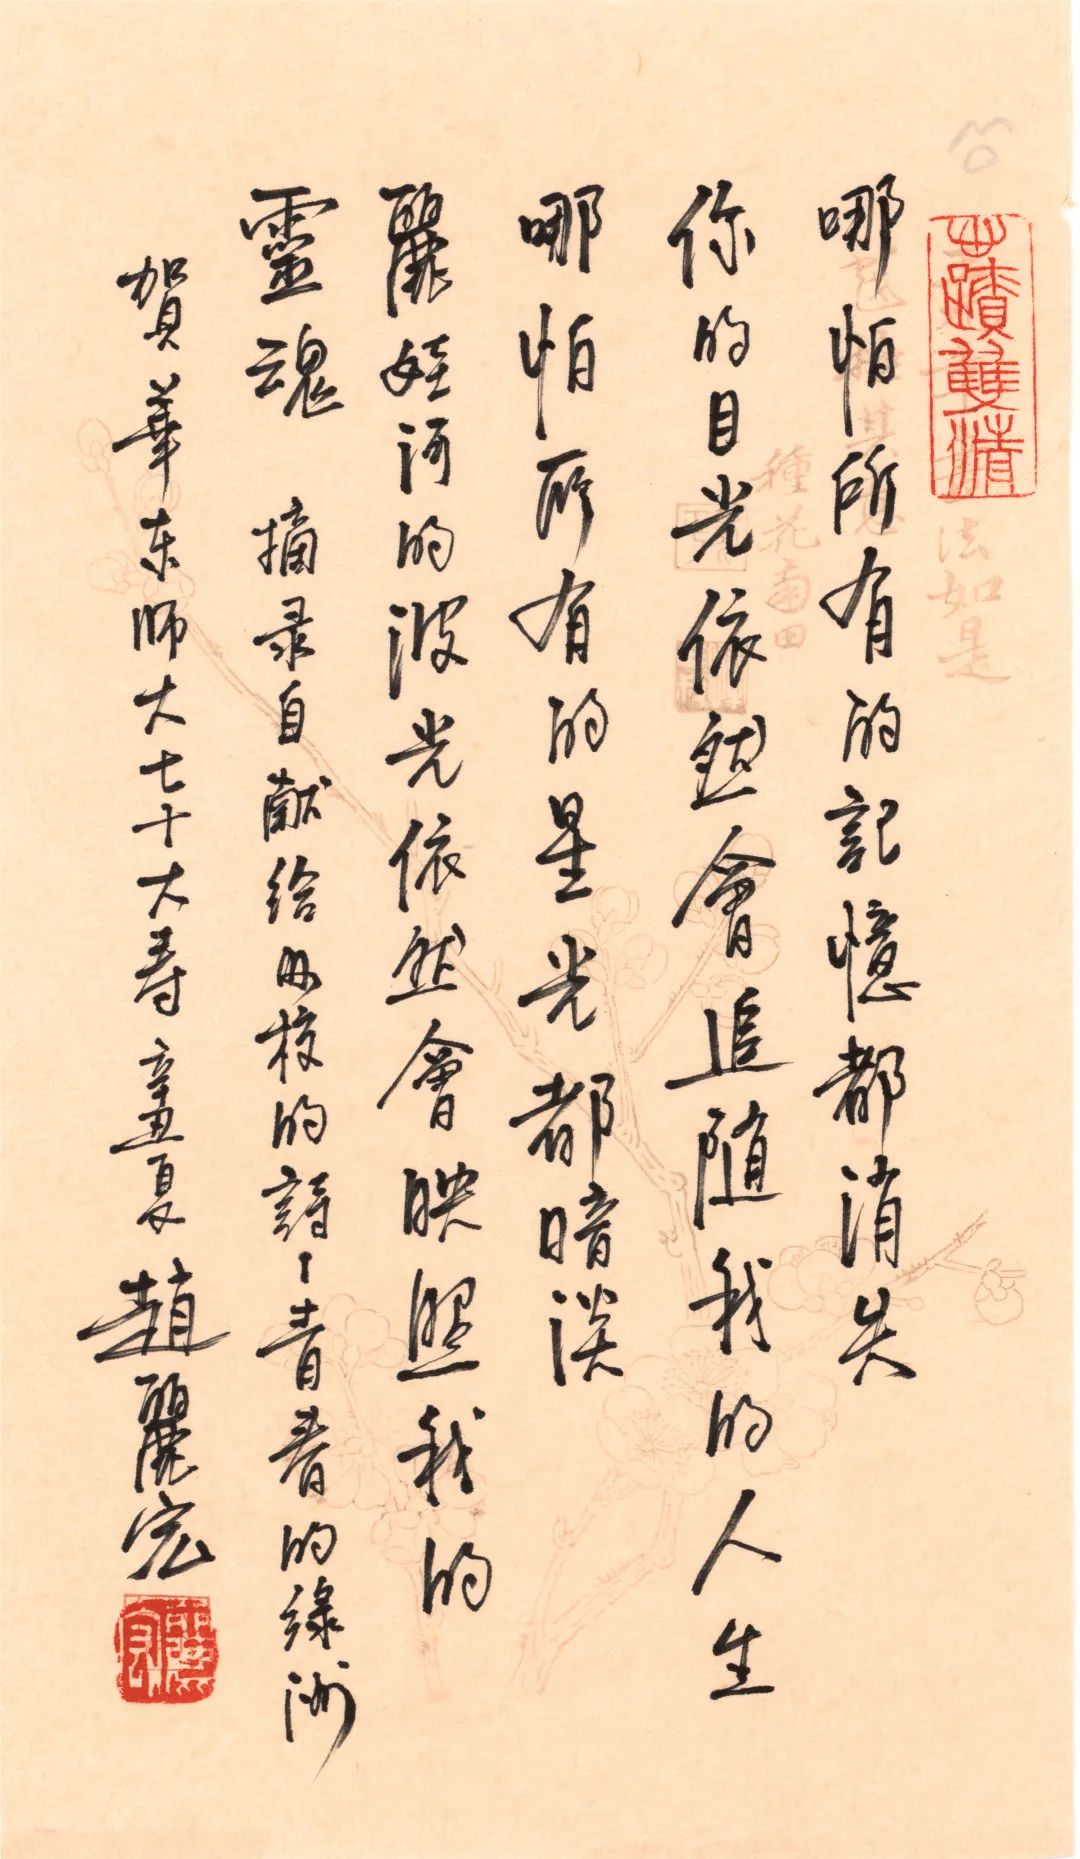 心蹟雙清
法如是
哪怕所有的記憶都消失
你的目光依然會追随我的人生
哪怕所有的星光都暗淡
麗娃河的波光依然會映照我的
靈魂 摘录自献给母校的詩「青春的綠洲
賀華东师大七十大寿 辛丑夏 趙麗宏
麗宏